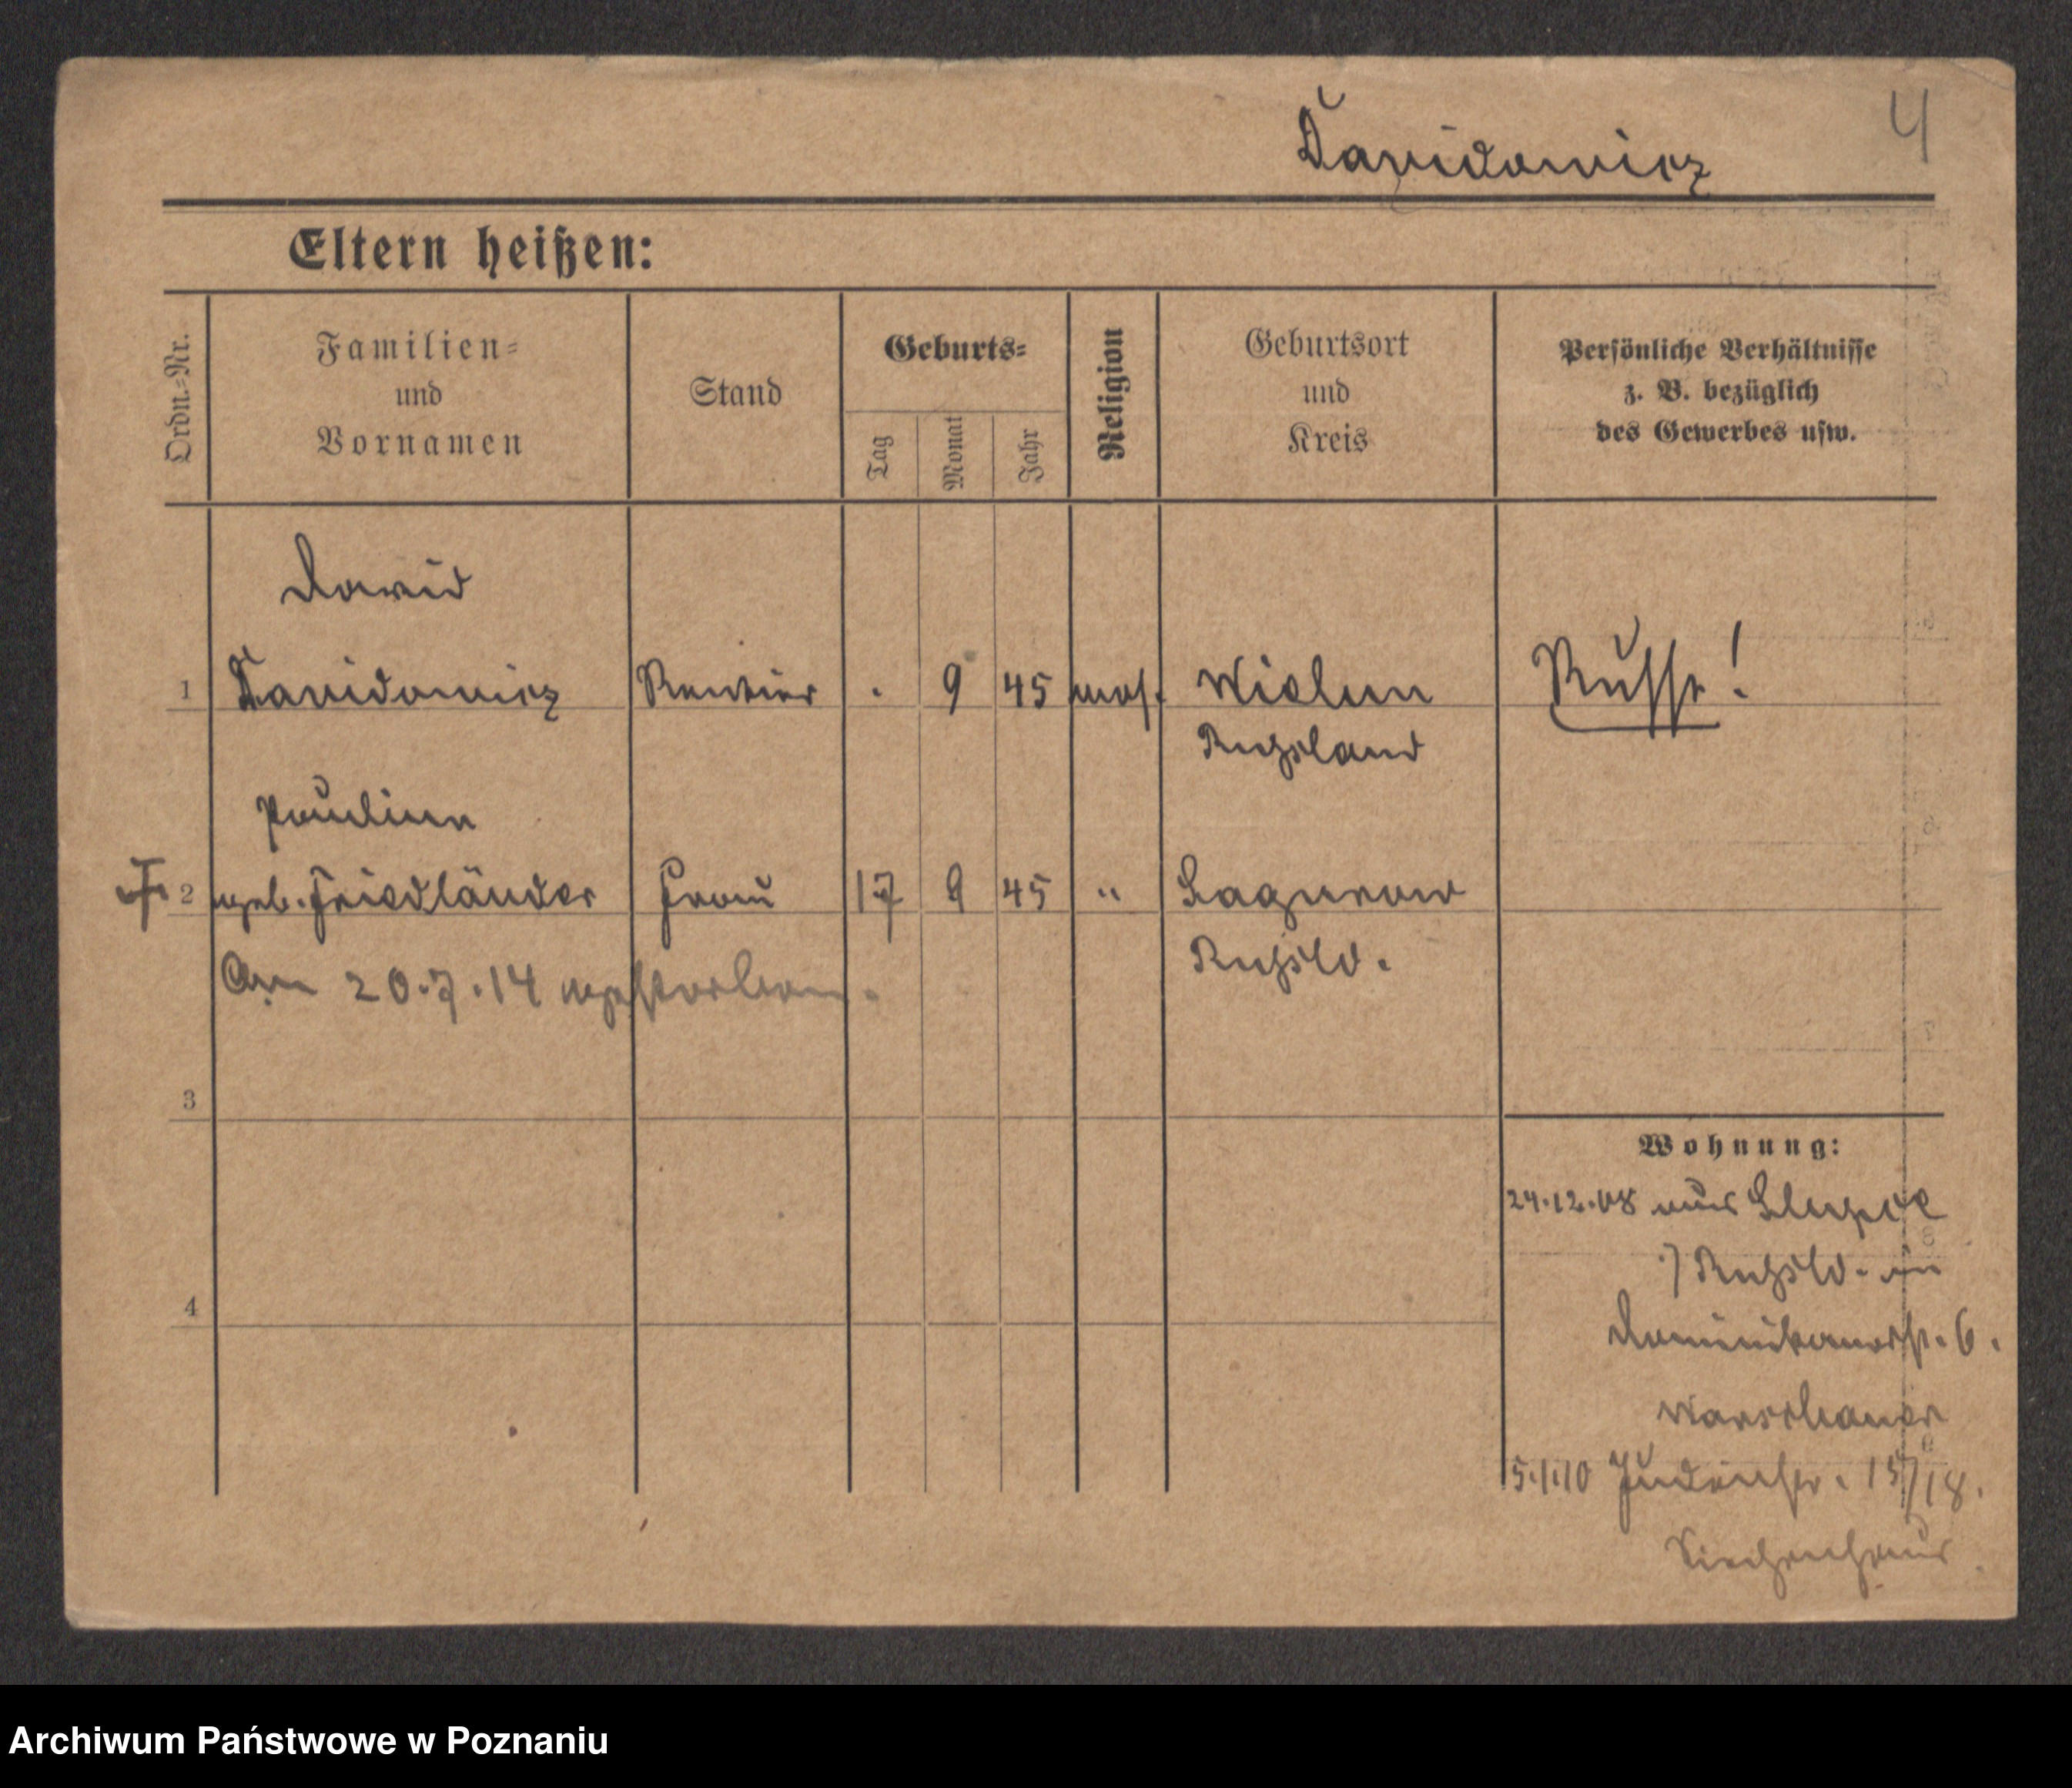 4
Davidowicz
Eltern heißen:
Ordn.-Nr.
Familien-
und
Vornamen
Stand
Geburts-
Tag
Monat
Jahr
Religion
Geburtsort
und
Kreis
Persönliche Verhältnisse
z. B. bezüglich
des Gewerbes usw.
David
1 Davidowicz Rentier . 9 45 mos. Wielun Russe!
Russland
Pauline
2 geb. Friedländer Frau 17 9 45 " Lagurow
Russld.
Am 20.7.14 gestorben.
3
4
Wohnung:
24.12.08 aus Slupce
Russld. in
Dominikanerstr. 6.
Warschauer
5.1.10 Judenstr. 15/18.
Siechenhaus
Archiwum Państwowe w Poznaniu